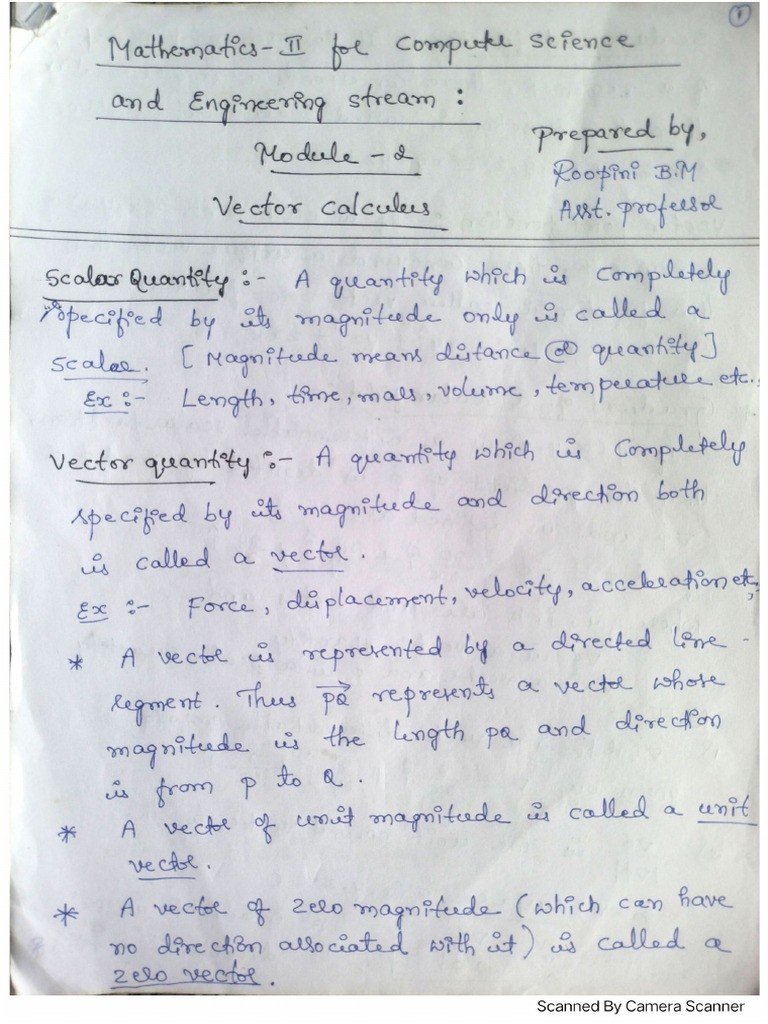 1
Mathematics-II for Computer Science
and Engineering stream :
Module - 2
Prepared by,
Roopini B.M
Vector Calculus
Asst. professor
Scalar Quantity :- A quantity which is Completely
specified by its magnitude only is called a
Scalar. [Magnitude means distance or quantity]
Ex :- Length, time, mass, volume, temperature etc.
Vector quantity :- A quantity which is Completely
specified by its magnitude and direction both
is called a vector.
Ex :- Force, displacement, velocity, acceleration etc,
* A vector is represented by a directed line
segment. Thus PQ represents a vector whose
magnitude is the length PQ and direction
is from P to Q.
* A vector of unit magnitude is called a unit
vector.
* A vector of zero magnitude (which can have
no direction associated with it) is called a
zero vector.
Scanned By Camera Scanner